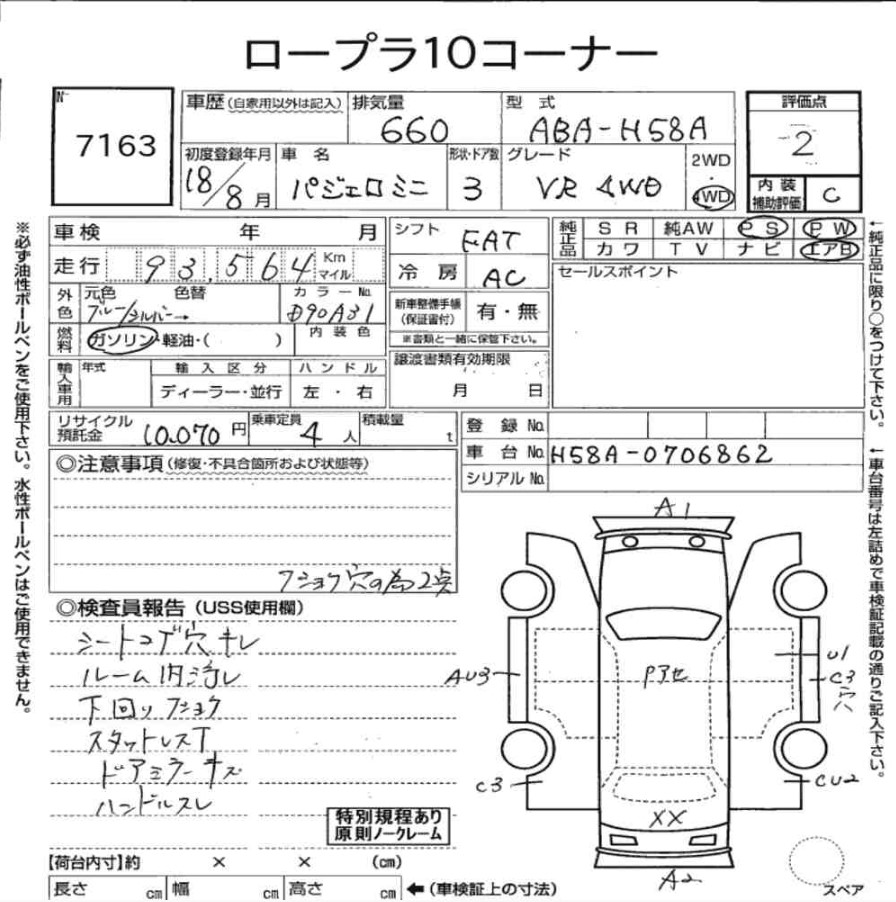 ロープラ10コーナー
No 7163
車歴(自家用以外は記入) 排気量 660 型式 ABA-H58A
評価点 2
初度登録年月 18/8月 車名 パジェロミニ 形状・ドア数 3 グレード VR 4WD 2WD・4WD
内装補助評価 C
車検 年 月
シフト FAT
純正品 SR 純AW PS PW
カワ TV ナビ エアB
走行 93,564 Km マイル
冷房 AC
セールスポイント
外色 元色 色替 カラーNo.
ブルー/シルバー→ D90A31
新車整備手帳(保証書付) 有・無
※書類と一緒に保管下さい。
燃料 ガソリン・軽油・( ) 内装色
譲渡書類有効期限 月 日
輸入車用 年式 輸入区分 ハンドル
ディーラー・並行 左・右
リサイクル預託金 10,070円 乗車定員 4人 積載量 t
登録No.
車台No. H58A-0706862
シリアルNo.
◎注意事項(修復・不具合箇所および状態等)
フショク穴の為2点
◎検査員報告(USS使用欄)
シートコゲ穴キレ
ルーム内汚レ
下回リフショク
スタットレスT
ドアミラーキズ
ハンドルスレ
特別規程あり
原則ノークレーム
A1
U1
AU3
Pアセ
C3
穴
C3
CU2
XX
A2
スペア
【荷台内寸】約 × × (cm)
長さ cm 幅 cm 高さ cm ←(車検証上の寸法)
※必ず油性ボールペンをご使用下さい。水性ボールペンはご使用できません。
←純正品に限り○をつけて下さい。
←車台番号は左詰めで車検証記載の通りご記入下さい。